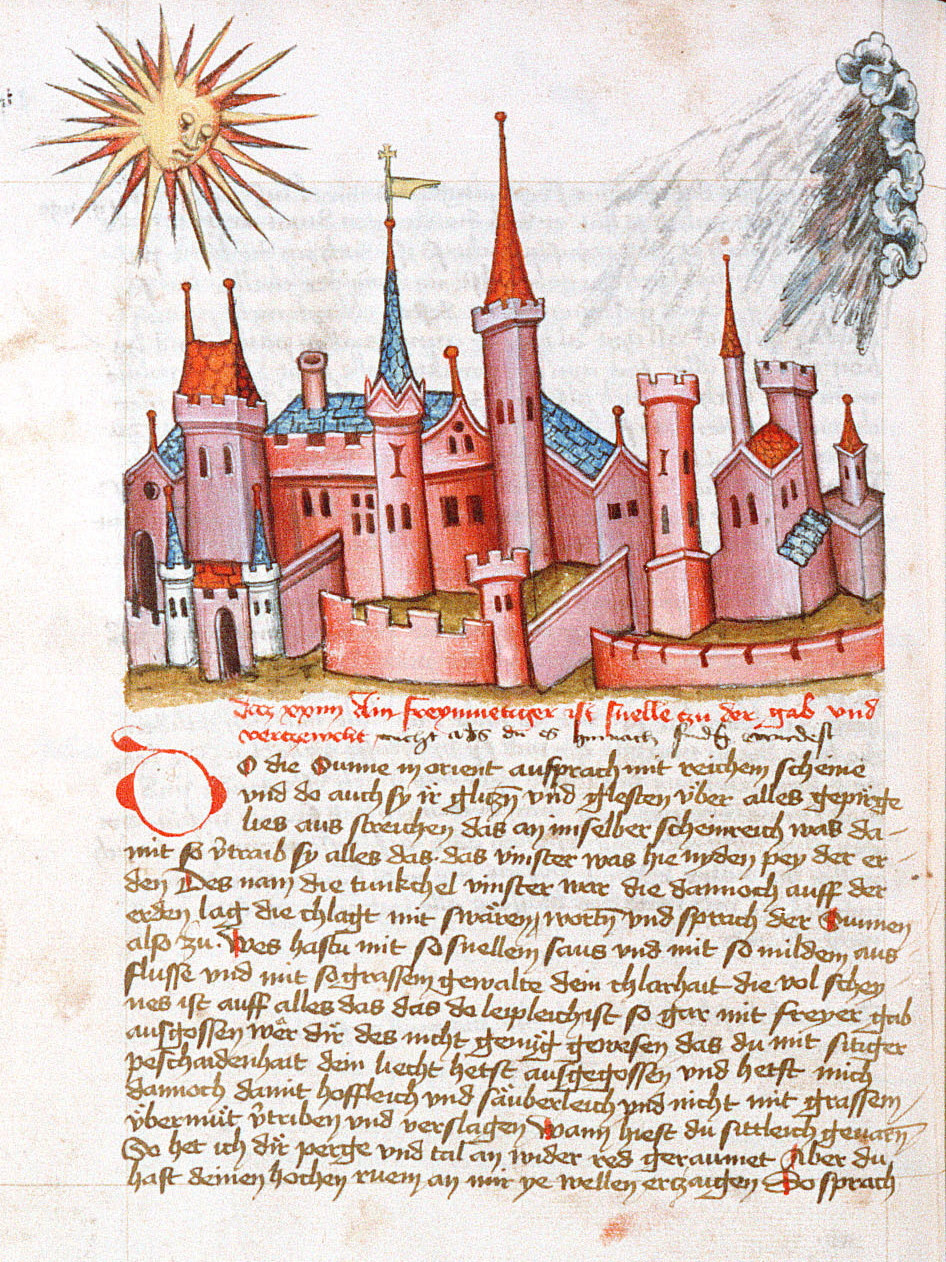 Daz xxiiij Ain freymuetiger ist snelle czu der gab vnd
verczewcht nicht als du es hernach findest
DO die Sunne in orient aufprach mit reichem scheine
vnd do auch sy ir gliczn vnd glesten vber alles gepirge
lies aus streichen das an im selber scheinreich was da-
mit so vtraib sy alles das das vinster was hie nyden pey der er-
den Des nam die tunkchel vinster war die dannoch auff der
erden lag die chlagt mit swären wortn vnd sprach der Sunnen
also zu. Wes hastu mit so snellem saus vnd mit so mildem aus-
flusse vnd mit so grassem gewalte dein chlarhait die vol schey-
nes ist auff alles das das do leipleich ist so gar mit freyer gab
ausgossen wër dir des nicht genüg gewesen das du mit sitiger
peschaidenhait dein liecht hetst ausgegossen vnd hetst mich
dannoch damit hoffleich vnd säuberleich vnd nicht mit grassem
vbermüt vtriben vnd verslagen Wann hiest du sittleich geuarn
So het ich dir perge vnd tal an wider red geraumet Aber du
hast deinen hochen ruem an mir ye wellen erczaigen Do sprach